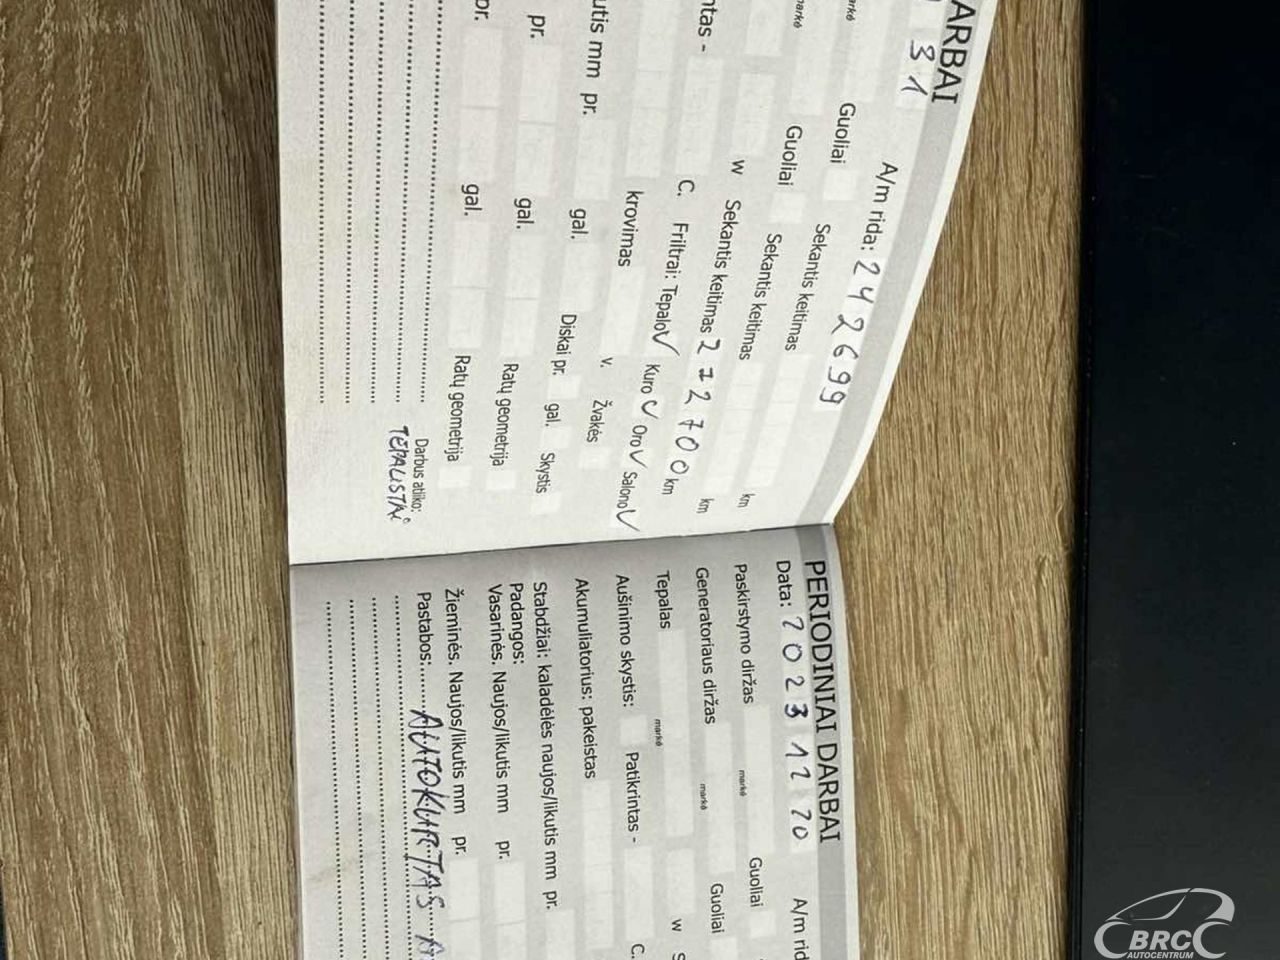 ARBAI
31
A/m rida: 242699
markė Guoliai Sekantis keitimas km
markė Guoliai Sekantis keitimas km
w Sekantis keitimas 272700 km
ntas - C. Friltrai: Tepalo V Kuro V Oro V Salono V
krovimas v. Žvakės
utis mm pr. gal. Diskai pr. gal. Skystis
pr. gal. Ratų geometrija
pr. gal. Ratų geometrija
Darbus atliko:
TEPALISTAI
PERIODINIAI DARBAI
Data: 2023 12 20 A/m rid
Paskirstymo diržas markė Guoliai
Generatoriaus diržas markė Guoliai
Tepalas markė w S
Aušinimo skystis: Patikrintas - C.
Akumuliatorius: pakeistas
Stabdžiai: kaladėlės naujos/likutis mm pr.
Padangos:
Vasarinės. Naujos/likutis mm pr.
Žieminės. Naujos/likutis mm pr.
Pastabos: AUTOKURTAS
BRC
AUTOCENTRUM